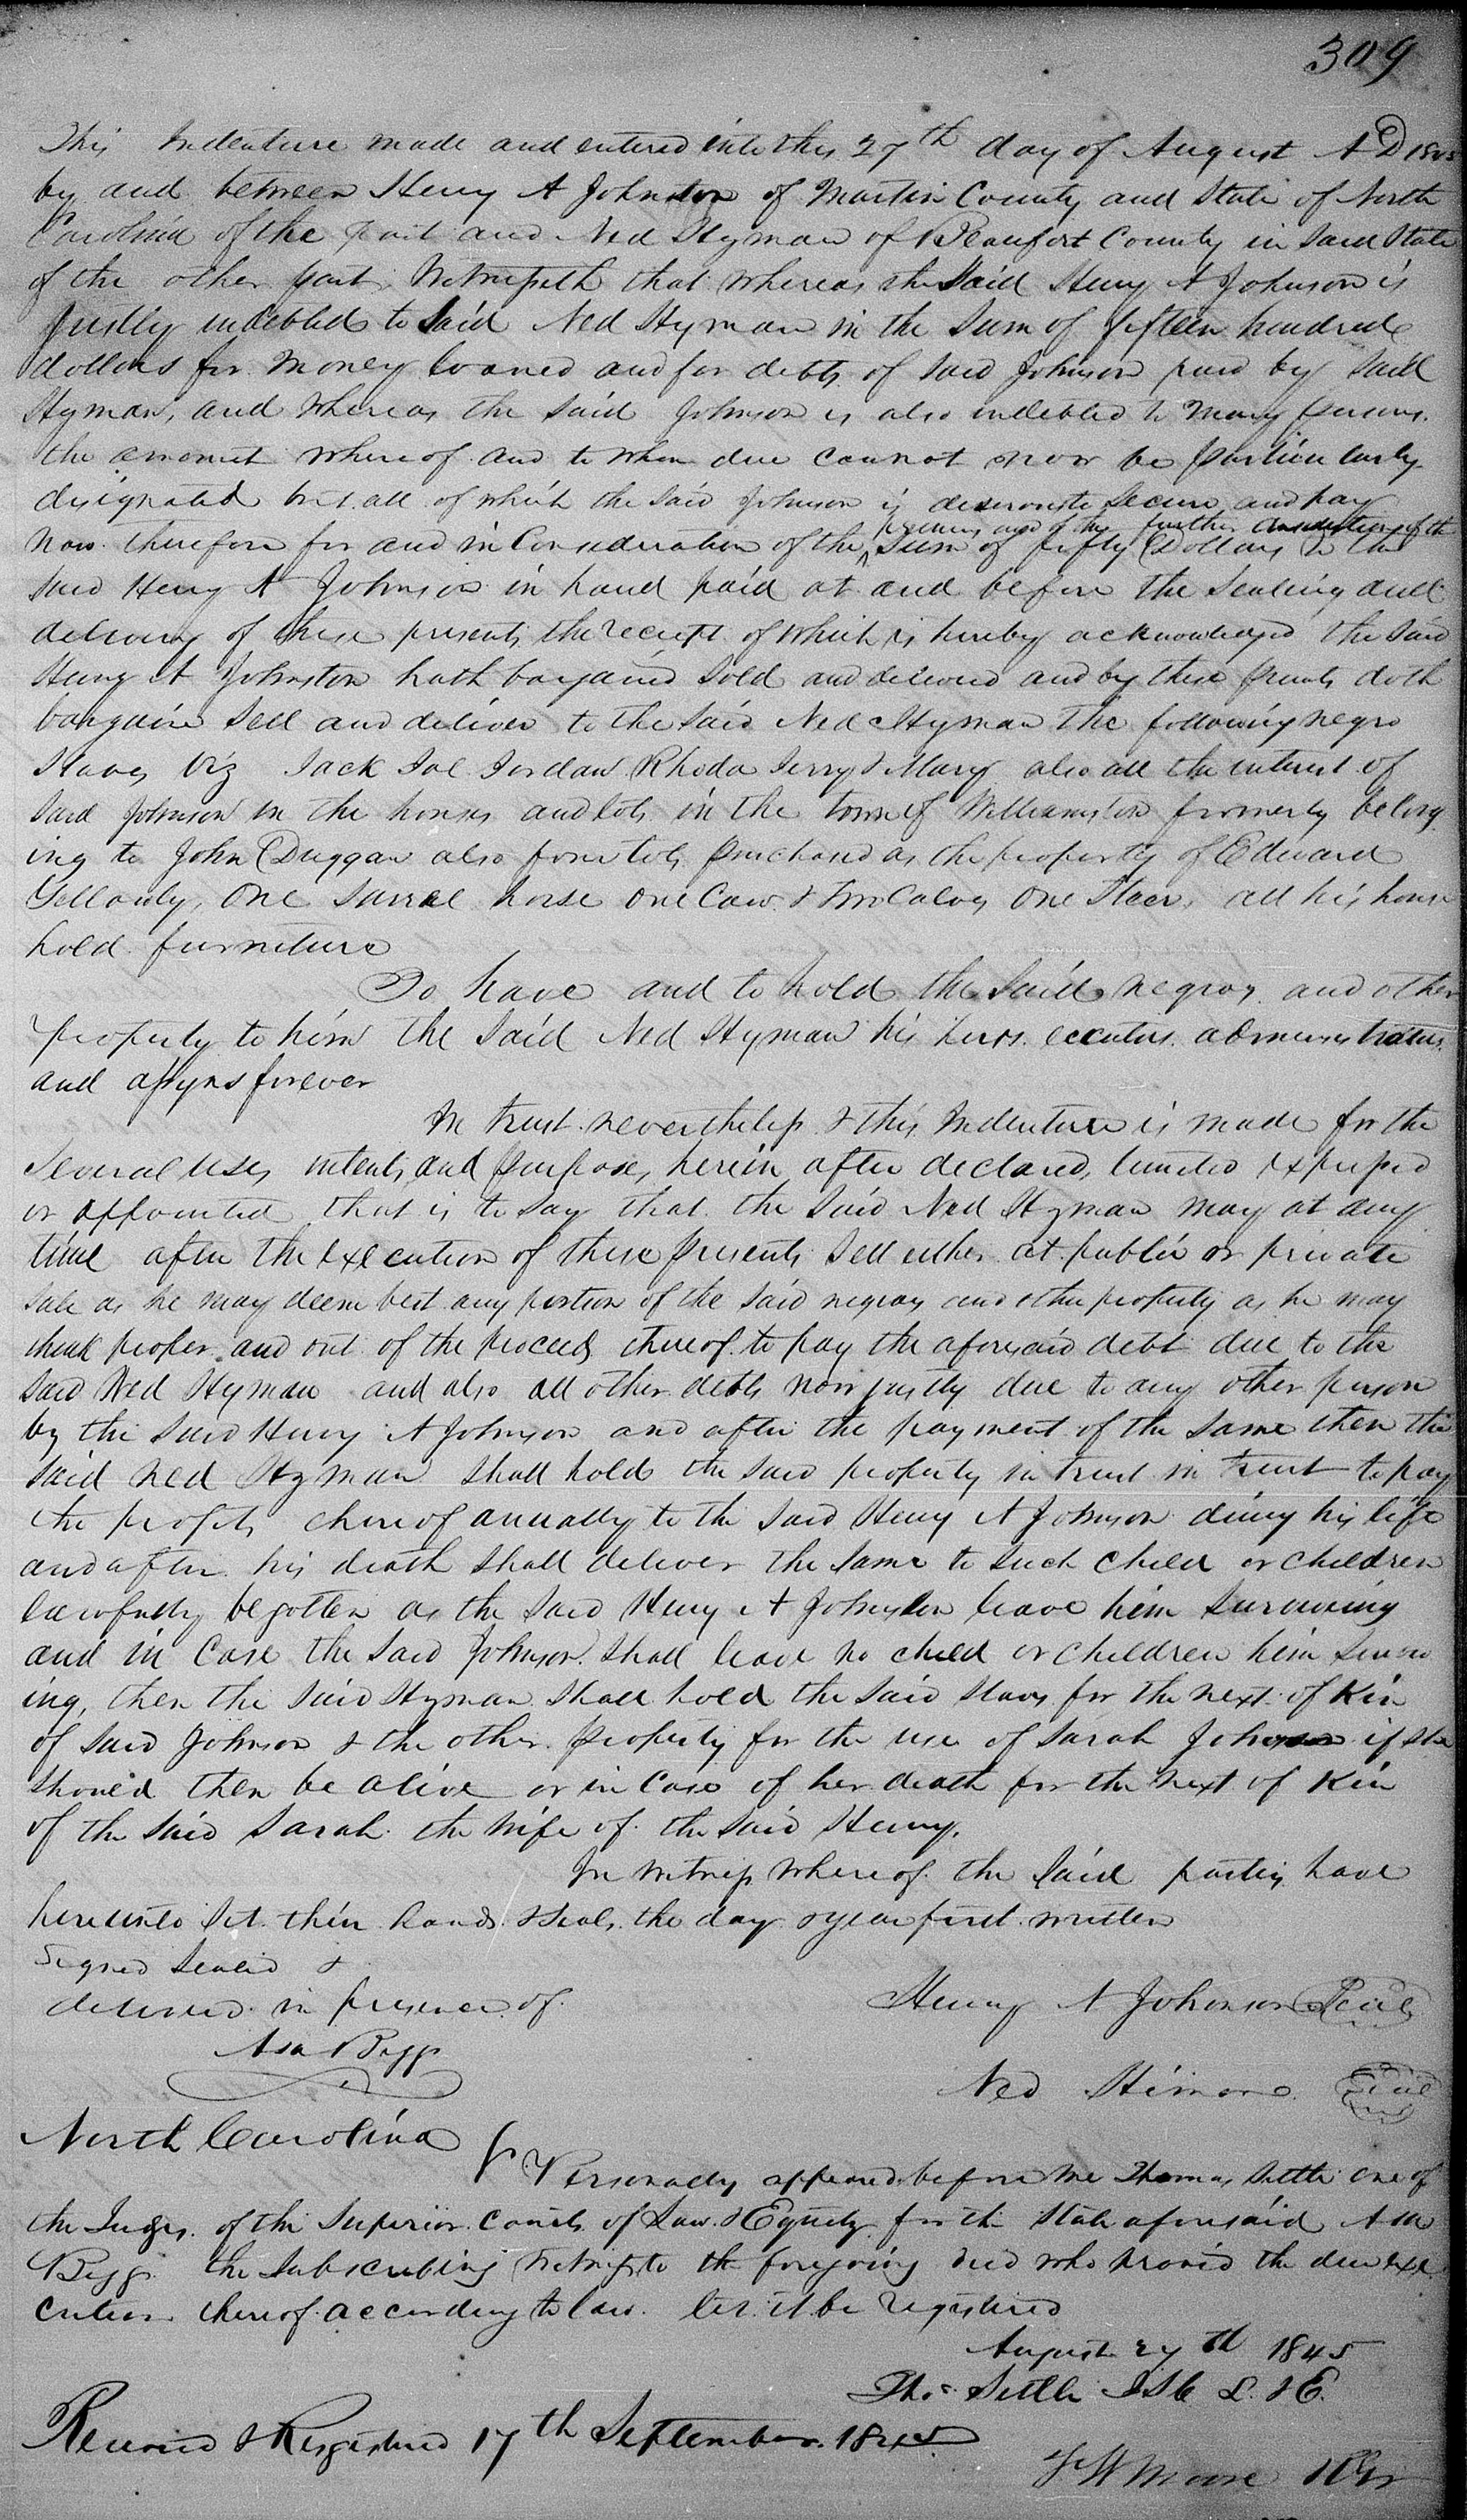 309
This Indenture made and entered into this 27th day of August A D 1845
by and between Henry A Johnston of Martin County and State of North
Carolina of the part and Ned Hyman of Beaufort County in said State
of the other part Witnesseth that whereas the Said Henry A Johnson is
justly indebted to Said Ned Hyman in the Sum of fifteen hundred
dollars for money loaned and for debts of said Johnson paid by said
Hyman, and whereas the said Johnson is also indebted to many persons
the amount whereof and to whom due cannot now be particularly
designated but all of which the said Johnson is desirous to Secure and pay
premises and of the further consideration of the
Now therefore for and in Consideration of the Sum of fifty Dollars to the
said Henry A Johnson in hand paid at and before the Sealing and
delivery of these presents the receipt of which is hereby acknowledged the said
Henry A Johnston hath bargained Sold and delivered and by these presents doth
bargain Sell and deliver to the Said Ned Hyman the following negro
Slaves Viz Jack Joe Jordan Rhoda Jerry & Mary also all the interest of
said Johnson in the houses and lots in the town of Williamston formerly belong
ing to John Duggan also four lots purchased as the property of Edward
Yellowly, One Sarrel horse one Cow & two Calves One Steer, all his house
hold furniture
To have and to hold the Said negroes and other
property to him the Said Ned Hyman his heirs executors administrators
and assigns forever
In trust nevertheless & this Indenture is made for the
Several uses, intents, and purposes, herein after declared, limited expressed
or appointed that is to say that the Said Ned Hyman may at any
time after the execution of these presents Sell either at public or private
sale as he may deem best any portion of the said negroes and other property as he may
think proper and out of the proceeds thereof to pay the aforesaid debt due to the
said Ned Hyman and also all other debts now justly due to any other person
by the said Henry A Johnson and after the payment of the same then the
said Ned Hyman shall hold the said property in trust in trust to pay
the profits thereof annually to the said Henry A Johnson during his life
and after his death shall deliver the same to such child or children
lawfully begotten as the said Henry A Johnston leave him surviving
and in Case the said Johnson shall leave no child or children him surviv
ing, then the said Hyman shall hold the said slaves for the next of Kin
of said Johnson & the other property for the use of Sarah Johnson if she
should then be alive or in case of her death for the next of Kin
of the said Sarah the wife of the said Henry.
In witness whereof the Said parties have
hereunto Set their hands & Seals the day & year first written
Signed Sealed &
delivered in presence of
Henry A Johnson Seal
Asa Biggs
Ned Himon Seal
North Carolina
Personally appeared before me Thomas Settle one of
the Judges of the Superior Courts of Law & Equity for the State aforesaid Asa
Biggs the Subscribing Witness to the foregoing deed who proved the due exe
cution thereof according to law. let it be registered
August 27th 1845
Thos Settle JSC L. & E.
Received & Registered 17th September 1845
Moore